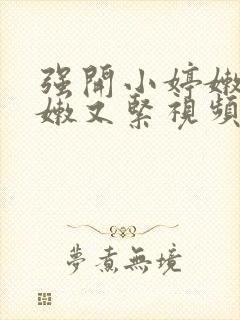 强開小婷嫩
嫩又緊視頻
夢煮無境